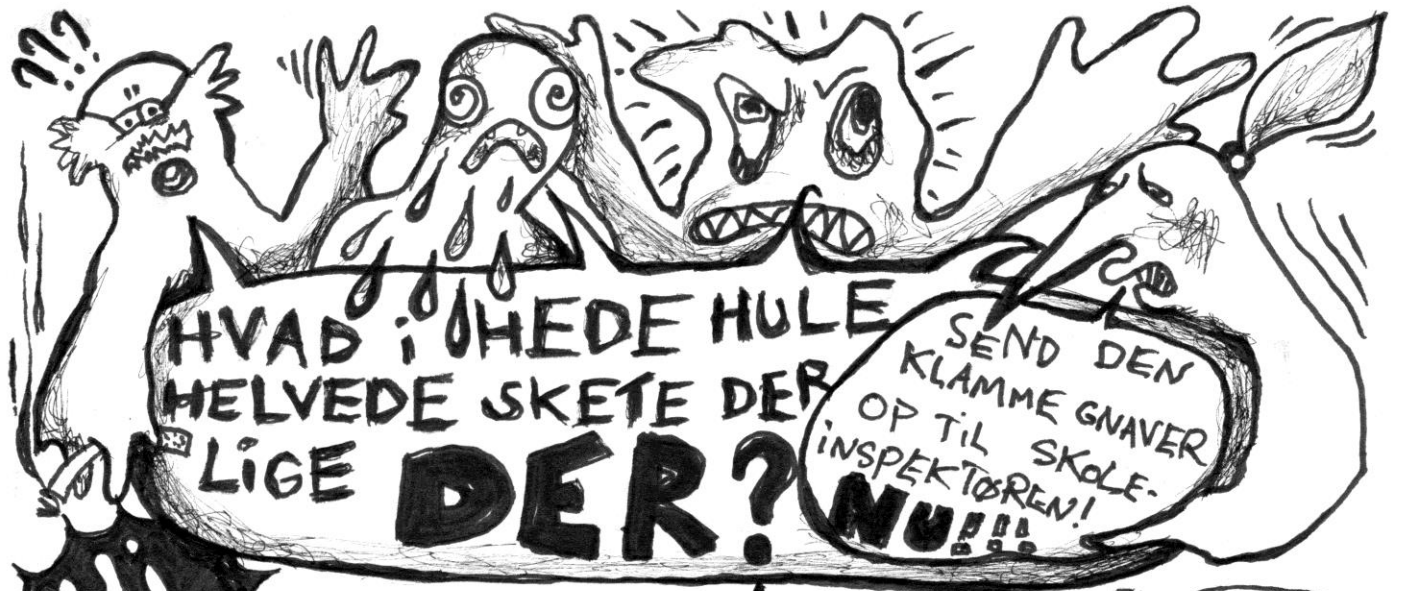 ???
HVAD i HEDE HULE
HELVEDE SKETE DER
LiGE DER?
SEND DEN
KLAMME GNAVER
OP TiL SKOLE-
iNSPEKTØREN!
NU!!!